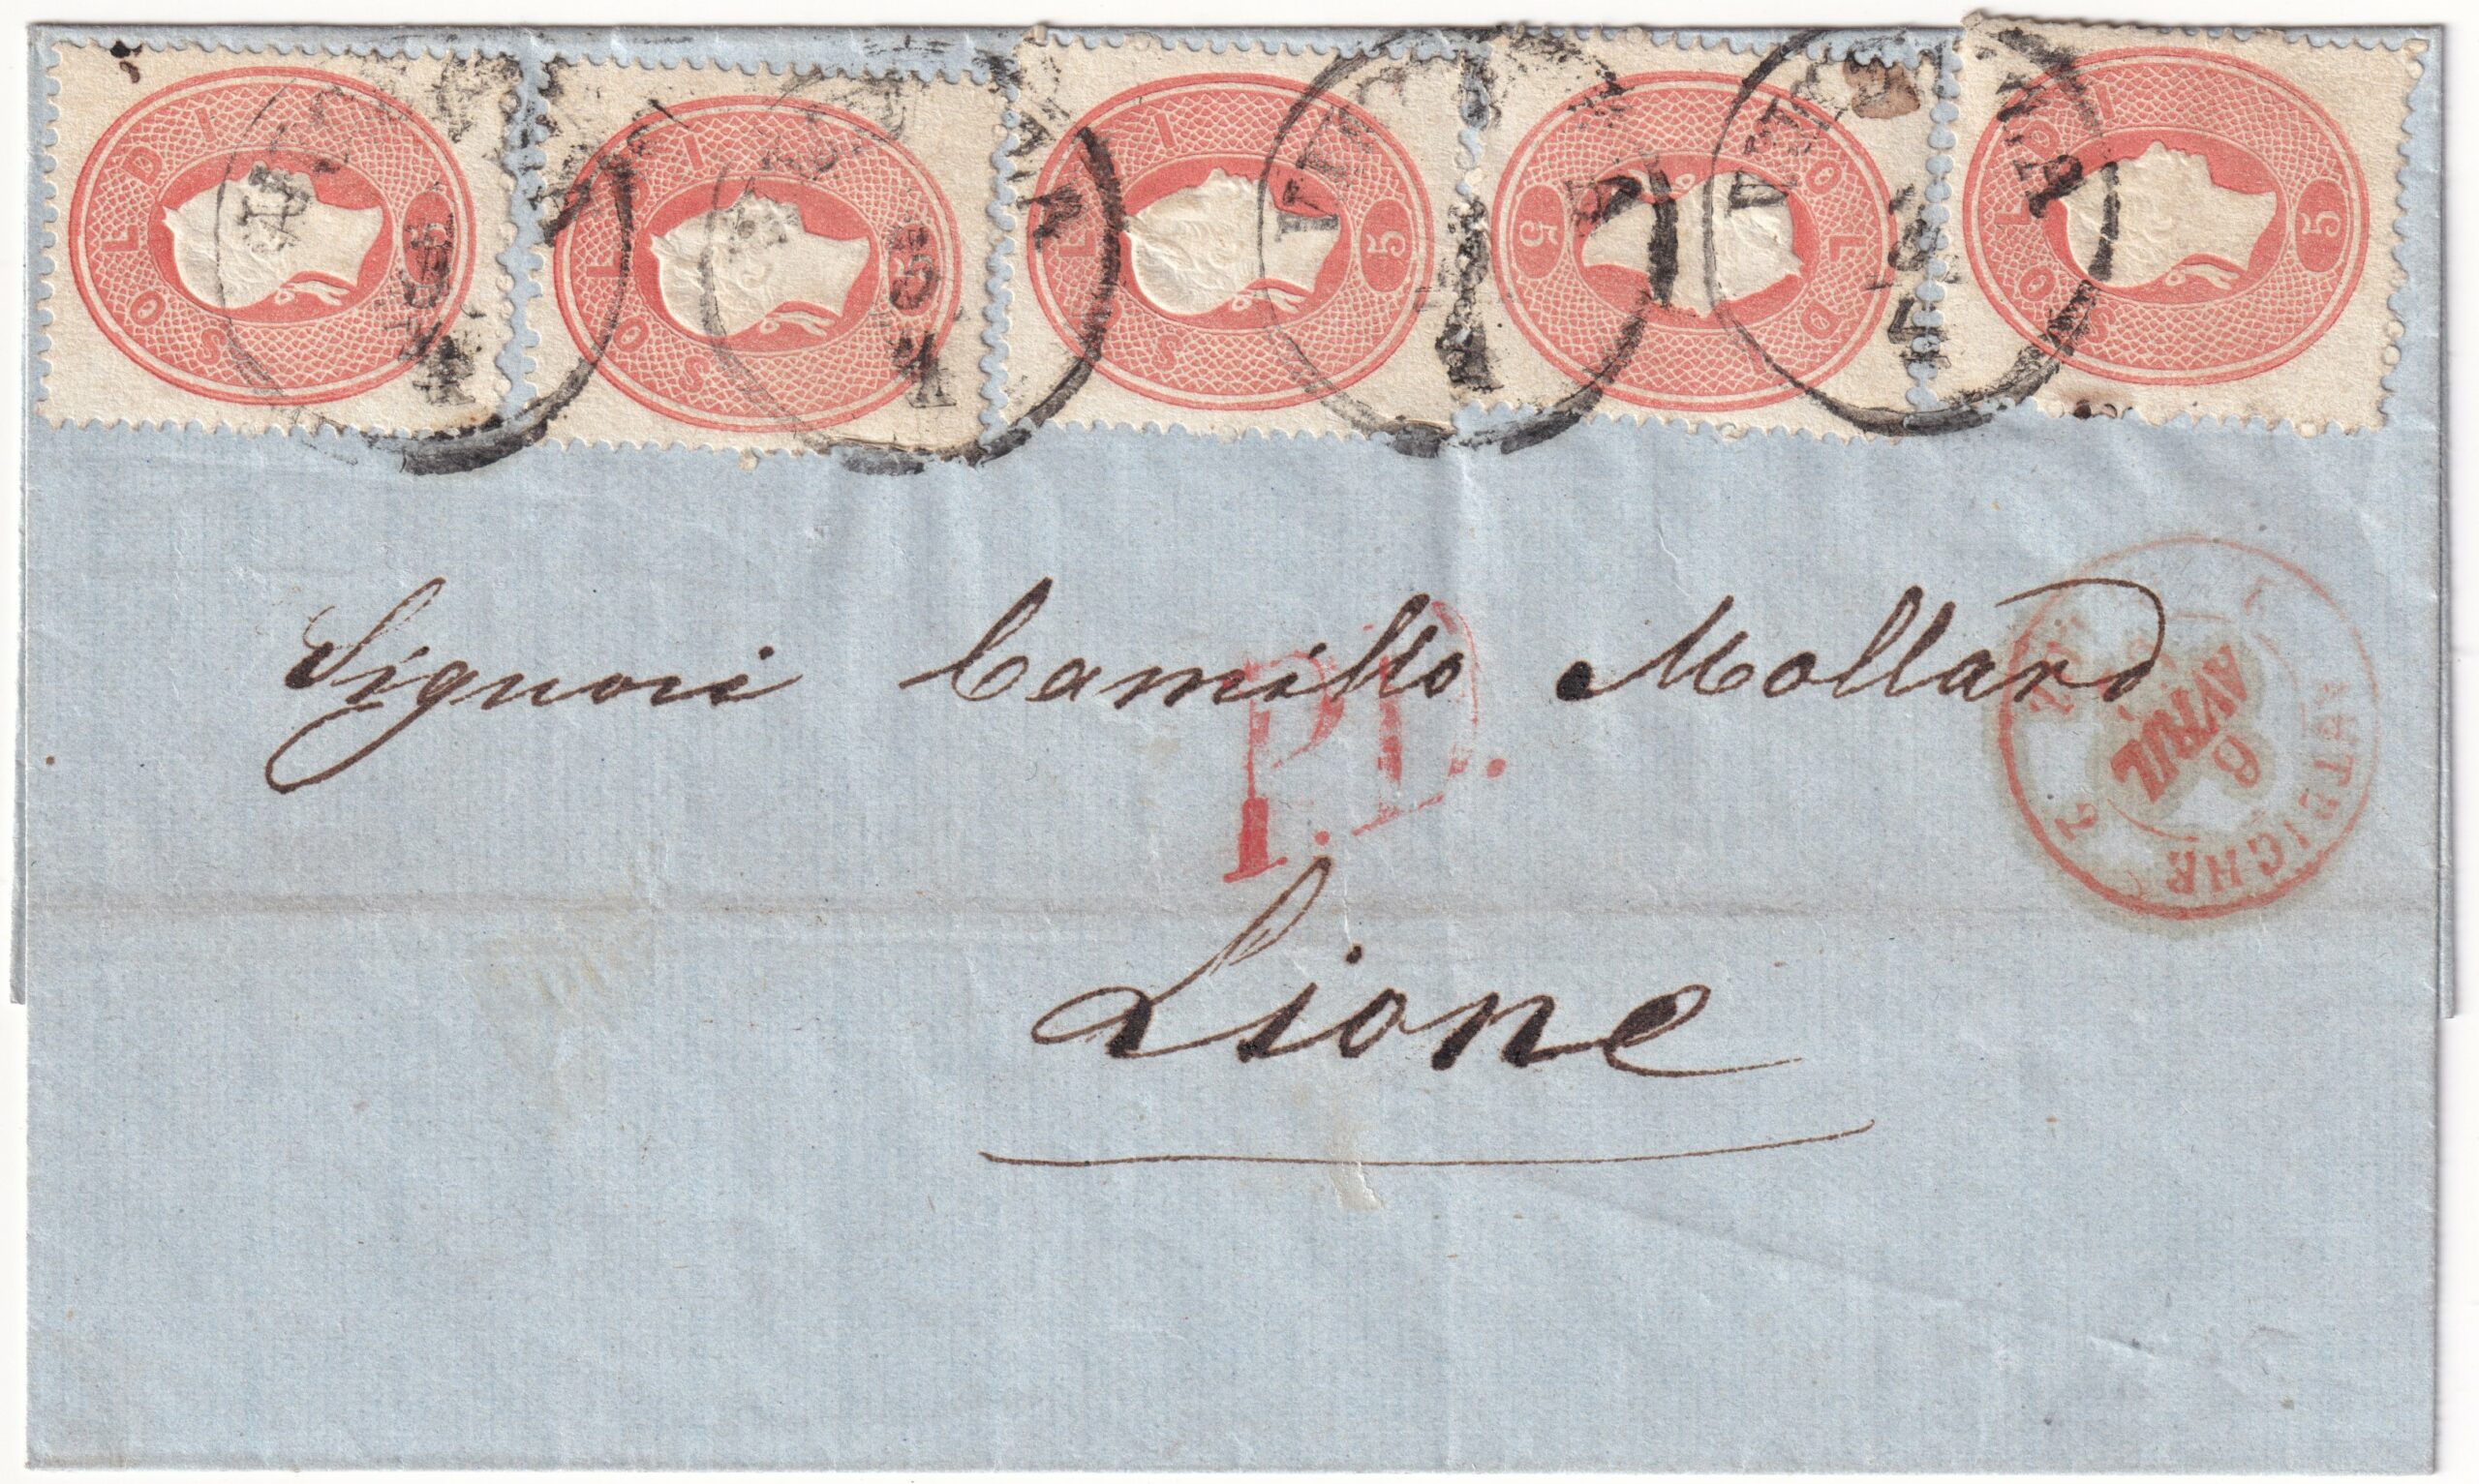 5 SOLDI
5 SOLDI
5 SOLDI
5 SOLDI
5 SOLDI
Signori Camillo Mollard
P.D.
6
AVRIL
2
Lione